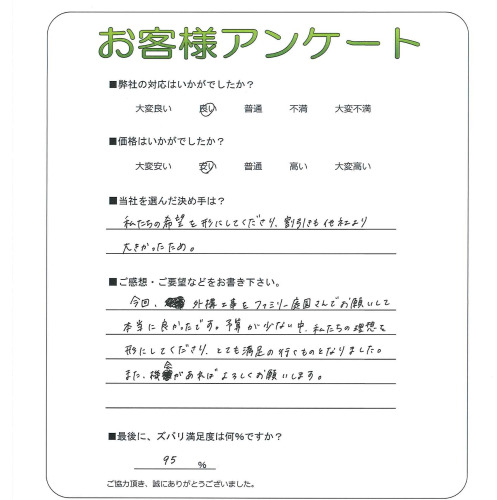 お客様アンケート
■弊社の対応はいかがでしたか?
大変良い 良い 普通 不満 大変不満
■価格はいかがでしたか?
大変安い 安い 普通 高い 大変高い
■当社を選んだ決め手は?
私たちの希望を形にしてくださり、割引きも他社より
大きかったため。
■ご感想・ご要望などをお書き下さい。
今回、外構工事をファミリー庭園さんでお願いして
本当に良かったです。予算が少ない中、私たちの理想を
形にしてくださり、とても満足の行くものとなりました。
また、機会があればよろしくお願いします。
■最後に、ズバリ満足度は何%ですか?
95 %
ご協力頂き、誠にありがとうございました。